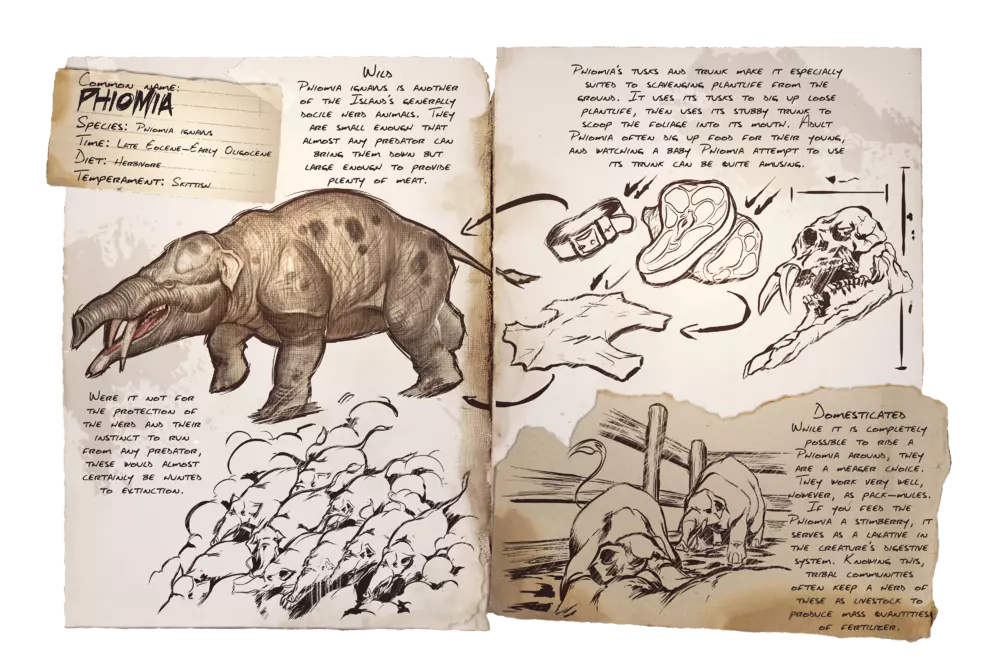 Common name:
PHIOMIA
Species: Phiomia ignavus
Time: Late Eocene-Early Oligocene
Diet: Herbivore
Temperament: Skittish
Wild
Phiomia ignavus is another
of the Island's generally
docile herd animals. They
are small enough that
almost any predator can
bring them down but
large enough to provide
plenty of meat.
Were it not for
the protection of
the herd and their
instinct to run
from any predator,
these would almost
certainly be hunted
to extinction.
Phiomia's tusks and trunk make it especially
suited to scavenging plantlife from the
ground. It uses its tusks to dig up loose
plantlife, then uses its stubby trunk to
scoop the foliage into its mouth. Adult
Phiomia often dig up food for their young,
and watching a baby Phiomia attempt to use
its trunk can be quite amusing.
Domesticated
While it is completely
possible to ride a
Phiomia around, they
are a meager choice.
They work very well,
however, as pack-mules.
If you feed the
Phiomia a stimberry, it
serves as a laxative in
the creature's digestive
system. Knowing this,
tribal communities
often keep a herd of
these as livestock to
produce mass quantities
of fertilizer.